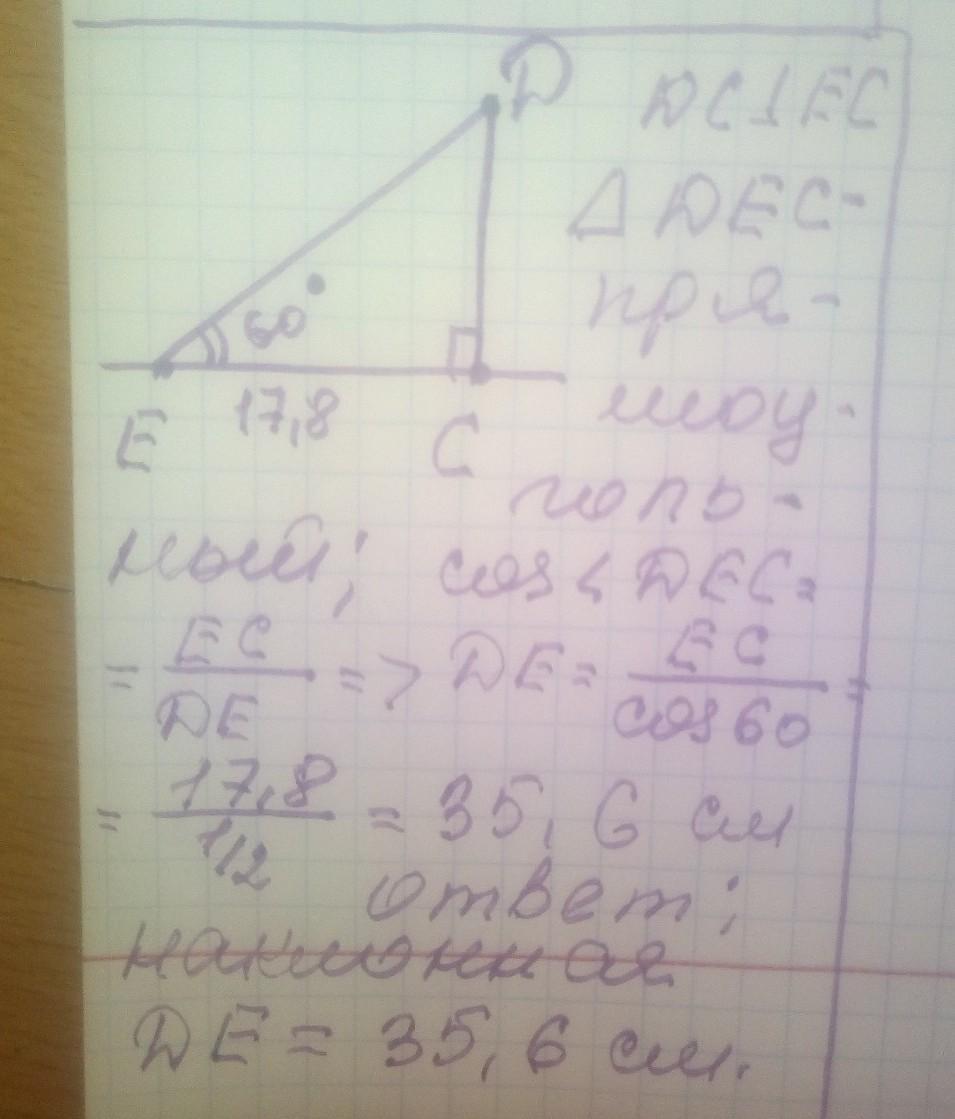 D
DC⊥EC
△DEC-
60°
пря-
17,8
моу-
E
C
голь-
ный; cos∠DEC=
= EC/DE => DE= EC/cos60 =
= 17,8/1/2 = 35,6 см
ответ;
наклонная
DE = 35,6 см.